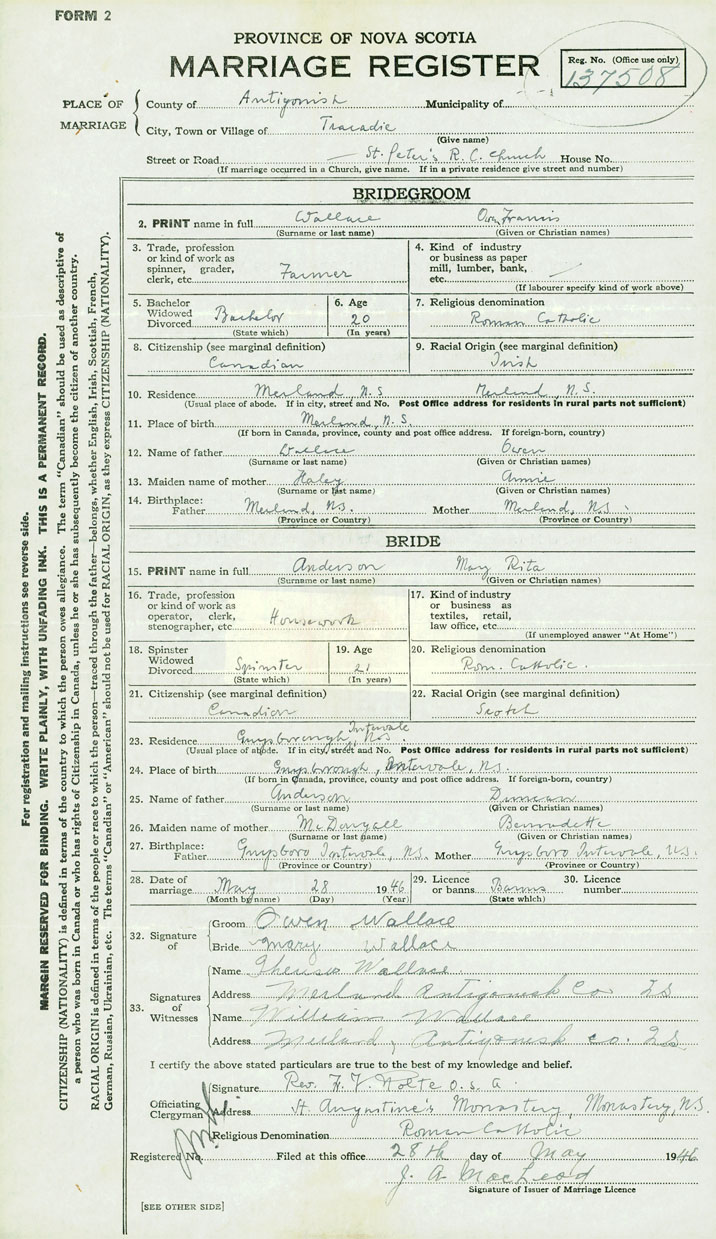 FORM 2
PROVINCE OF NOVA SCOTIA
MARRIAGE REGISTER
Reg. No. (Office use only)
137508
PLACE OF MARRIAGE
County of Antigonish Municipality of
City, Town or Village of Tracadie
(Give name)
Street or Road St. Peter's R. C. Church House No.
(If marriage occurred in a Church, give name. If in a private residence give street and number)
BRIDEGROOM
2. PRINT name in full Wallace Owen Francis
(Surname or last name) (Given or Christian names)
3. Trade, profession or kind of work as spinner, grader, clerk, etc. Farmer
4. Kind of industry or business as paper mill, lumber, bank, etc.
(If labourer specify kind of work above)
5. Bachelor Widowed Divorced Bachelor
(State which)
6. Age 20
(In years)
7. Religious denomination
Roman Catholic
8. Citizenship (see marginal definition)
Canadian
9. Racial Origin (see marginal definition)
Irish
10. Residence Merland N.S Merland, N.S.
(Usual place of abode. If in city, street and No. Post Office address for residents in rural parts not sufficient)
11. Place of birth Merland, N.S.
(If born in Canada, province, county and post office address. If foreign-born, country)
12. Name of father Wallace Owen
(Surname or last name) (Given or Christian names)
13. Maiden name of mother Haley Annie
(Surname or last name) (Given or Christian names)
14. Birthplace: Father Merland, N.S. Mother Merland, N.S.
(Province or Country) (Province or Country)
BRIDE
15. PRINT name in full Anderson Mary Rita
(Surname or last name) (Given or Christian names)
16. Trade, profession or kind of work as operator, clerk, stenographer, etc. Housework
17. Kind of industry or business as textiles, retail, law office, etc.
(If unemployed answer "At Home")
18. Spinster Widowed Divorced Spinster
(State which)
19. Age 21
(In years)
20. Religious denomination
Rom. Catholic.
21. Citizenship (see marginal definition)
Canadian
22. Racial Origin (see marginal definition)
Scotch
23. Residence Guysborough, Intervale N.S.
(Usual place of abode. If in city, street and No. Post Office address for residents in rural parts not sufficient)
24. Place of birth Guysborough, Intervale, N.S.
(If born in Canada, province, county and post office address. If foreign-born, country)
25. Name of father Anderson Duncan
(Surname or last name) (Given or Christian names)
26. Maiden name of mother McDougall Bernadette
(Surname or last name) (Given or Christian names)
27. Birthplace: Father Guysboro Intervale, N.S. Mother Guysboro Intervale, N.S.
(Province or Country) (Province or Country)
28. Date of marriage May 28 1946
(Month by name) (Day) (Year)
29. Licence or banns Banns
(State which)
30. Licence number
32. Signature of
Groom Owen Wallace
Bride Mary Wallace
33. Signatures of Witnesses
Name Theresa Wallace
Address Merland Antigonish Co NS
Name William Wallace
Address Merland, Antigonish co. NS
I certify the above stated particulars are true to the best of my knowledge and belief.
Officiating Clergyman
Signature Rev. H. V. Nolte O.S.A
Address St. Augustine's Monastery, Monastery, N.S.
Religious Denomination Roman Catholic
Registered No. Filed at this office 28th day of May 1946
J. A. MacLeod
Signature of Issuer of Marriage Licence
[SEE OTHER SIDE]
For registration and mailing instructions see reverse side.
MARGIN RESERVED FOR BINDING. WRITE PLAINLY, WITH UNFADING INK. THIS IS A PERMANENT RECORD.
CITIZENSHIP (NATIONALITY) is defined in terms of the country to which the person owes allegiance. The term "Canadian" should be used as descriptive of
a person who was born in Canada or who has rights of Citizenship in Canada, unless he or she has subsequently become the citizen of another country.
RACIAL ORIGIN is defined in terms of the people or race to which the person—traced through the father—belongs, whether English, Irish, Scottish, French,
German, Russian, Ukrainian, etc. The terms "Canadian" or "American" should not be used for RACIAL ORIGIN, as they express CITIZENSHIP (NATIONALITY).